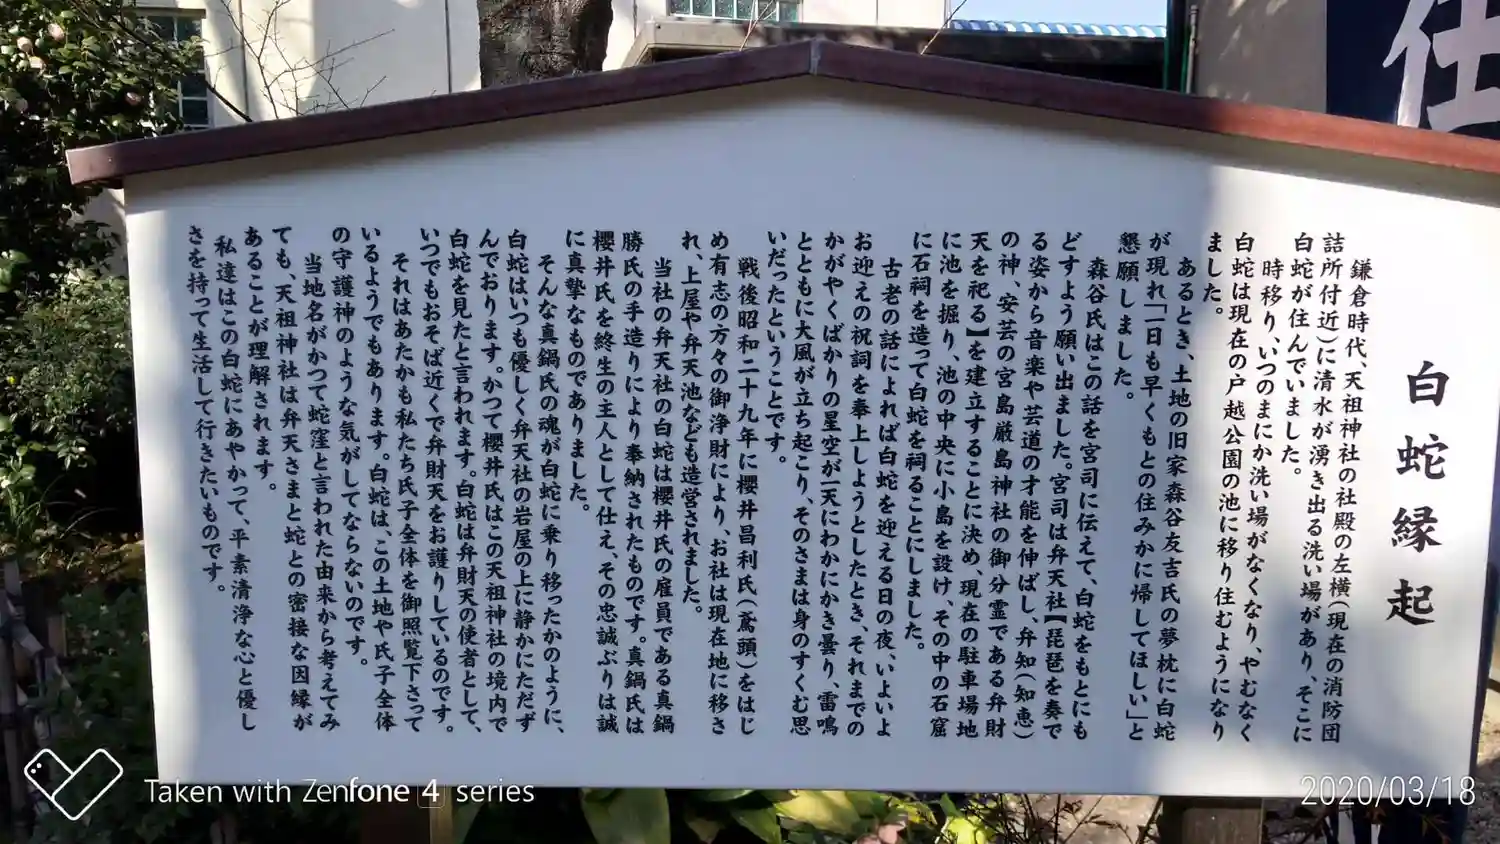 白蛇縁起
鎌倉時代、天祖神社の社殿の左横(現在の消防団
詰所付近)に清水が湧き出る洗い場があり、そこに
白蛇が住んでいました。
時移り、いつのまにか洗い場がなくなり、やむなく
白蛇は現在の戸越公園の池に移り住むようになり
ました。
あるとき、土地の旧家森谷友吉氏の夢枕に白蛇
が現れ「一日も早くもとの住みかに帰してほしい」と
懇願しました。
森谷氏はこの話を宮司に伝えて、白蛇をもとにも
どすよう願い出ました。宮司は弁天社【琵琶を奏で
る姿から音楽や芸道の才能を伸ばし、弁知(知恵)
の神、安芸の宮島厳島神社の御分霊である弁財
天を祀る】を建立することに決め、現在の駐車場地
に池を掘り、池の中央に小島を設け、その中の石窟
に石祠を造って白蛇を祠ることにしました。
古老の話によれば白蛇を迎える日の夜、いよいよ
お迎えの祝詞を奉上しようとしたとき、それまでの
かがやくばかりの星空が一天にわかにかき曇り、雷鳴
とともに大風が立ち起こり、そのさまは身のすくむ思
いだったということです。
戦後昭和二十九年に櫻井昌利氏(鳶頭)をはじ
め有志の方々の御浄財により、お社は現在地に移さ
れ、上屋や弁天池なども造営されました。
当社の弁天社の白蛇は櫻井氏の雇員である真鍋
勝氏の手造りにより奉納されたものです。真鍋氏は
櫻井氏を終生の主人として仕え、その忠誠ぶりは誠
に真摯なものでありました。
そんな真鍋氏の魂が白蛇に乗り移ったかのように、
白蛇はいつも優しく弁天社の岩屋の上に静かにただず
んでおります。かつて櫻井氏はこの天祖神社の境内で
白蛇を見たと言われます。白蛇は弁財天の使者として、
いつでもおそば近くで弁財天をお護りしているのです。
それはあたかも私たち氏子全体を御照覧下さって
いるようでもあります。白蛇は、この土地や氏子全体
の守護神のような気がしてならないのです。
当地名がかつて蛇窪と言われた由来から考えてみ
ても、天祖神社は弁天さまと蛇との密接な因縁が
あることが理解されます。
私達はこの白蛇にあやかって、平素清浄な心と優し
さを持って生活して行きたいものです。
住
Taken with Zenfone 4 series
2020/03/18